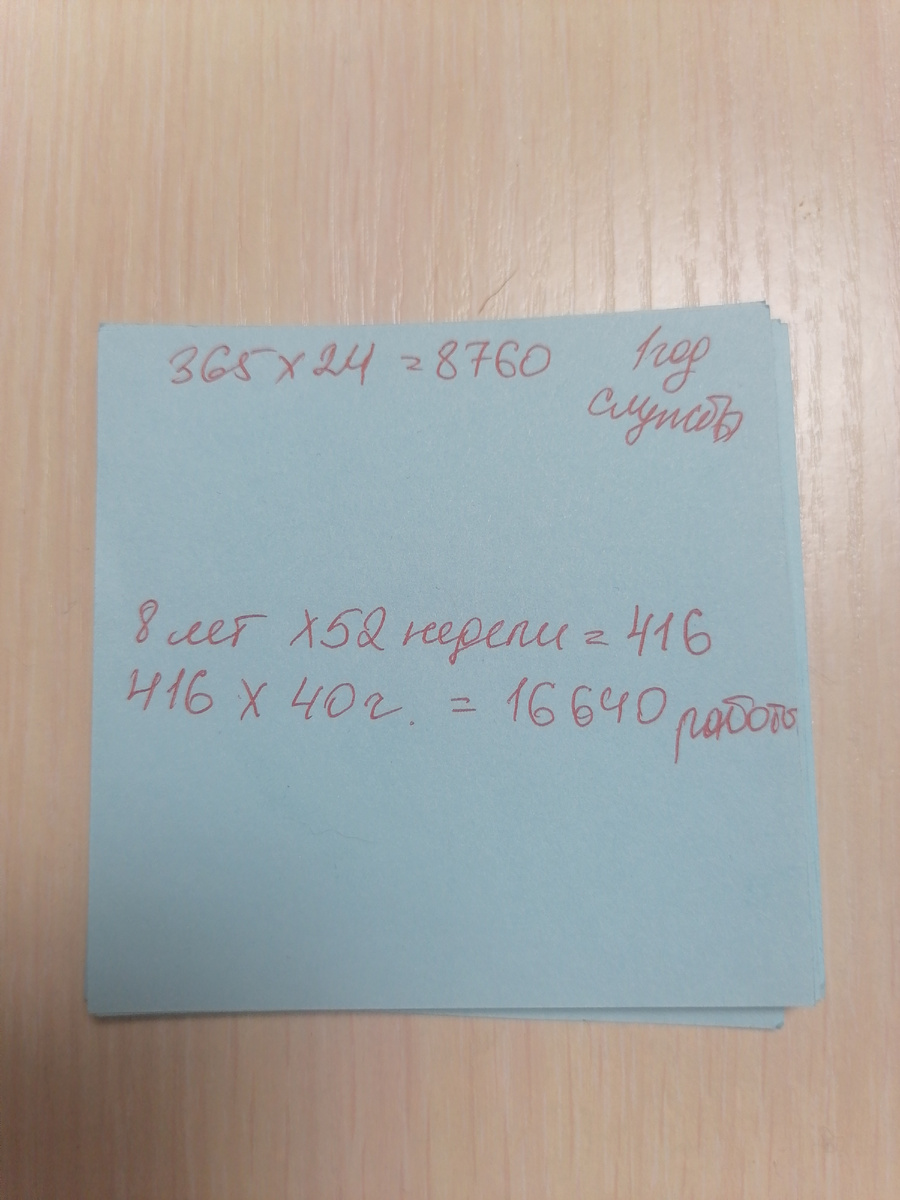 365 x 24 = 8760 1 год
службы
8 лет x 52 недели = 416
416 x 40 г. = 16640 работы